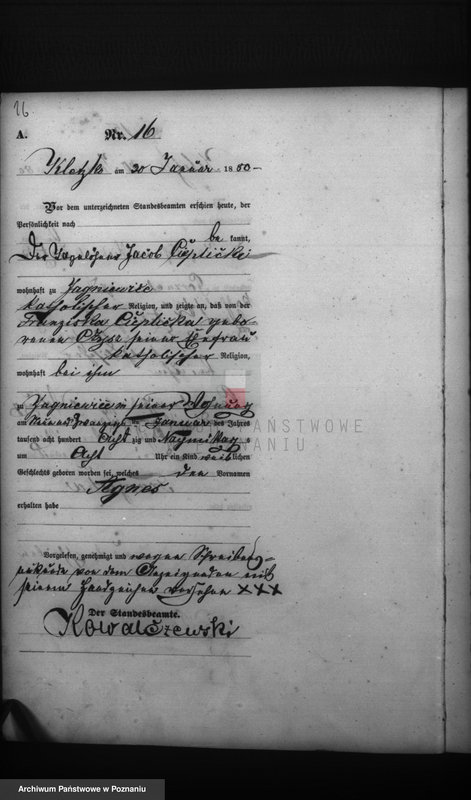 16
A.
Nr. 16
Kletzko am 30 Januar 1880 -
Vor dem unterzeichneten Standesbeamten erschien heute, der
Persönlichkeit nach
be kannt,
Der Tagelöhner Jacob
wohnhaft zu
katholischer Religion, und zeigte an, daß von der
Franziska gebo-
renen seiner Ehefrau
katholischer Religion,
wohnhaft bei ihm
zu in seiner Wohnung
am Januar des Jahres
tausend acht hundert Acht zig und Nachmittag s
um Acht Uhr ein Kind weib lichen
Geschlechts geboren worden sei, welches den Vornamen
Agnes
erhalten habe
Vorgelesen, genehmigt und wegen Schreibens-
unkunde von dem Anzeigenden mit
seinem Handzeichen versehen XXX
Der Standesbeamte.
Kowalczewski
ARCHIWUM PAŃSTWOWE
W POZNANIU
Archiwum Państwowe w Poznaniu